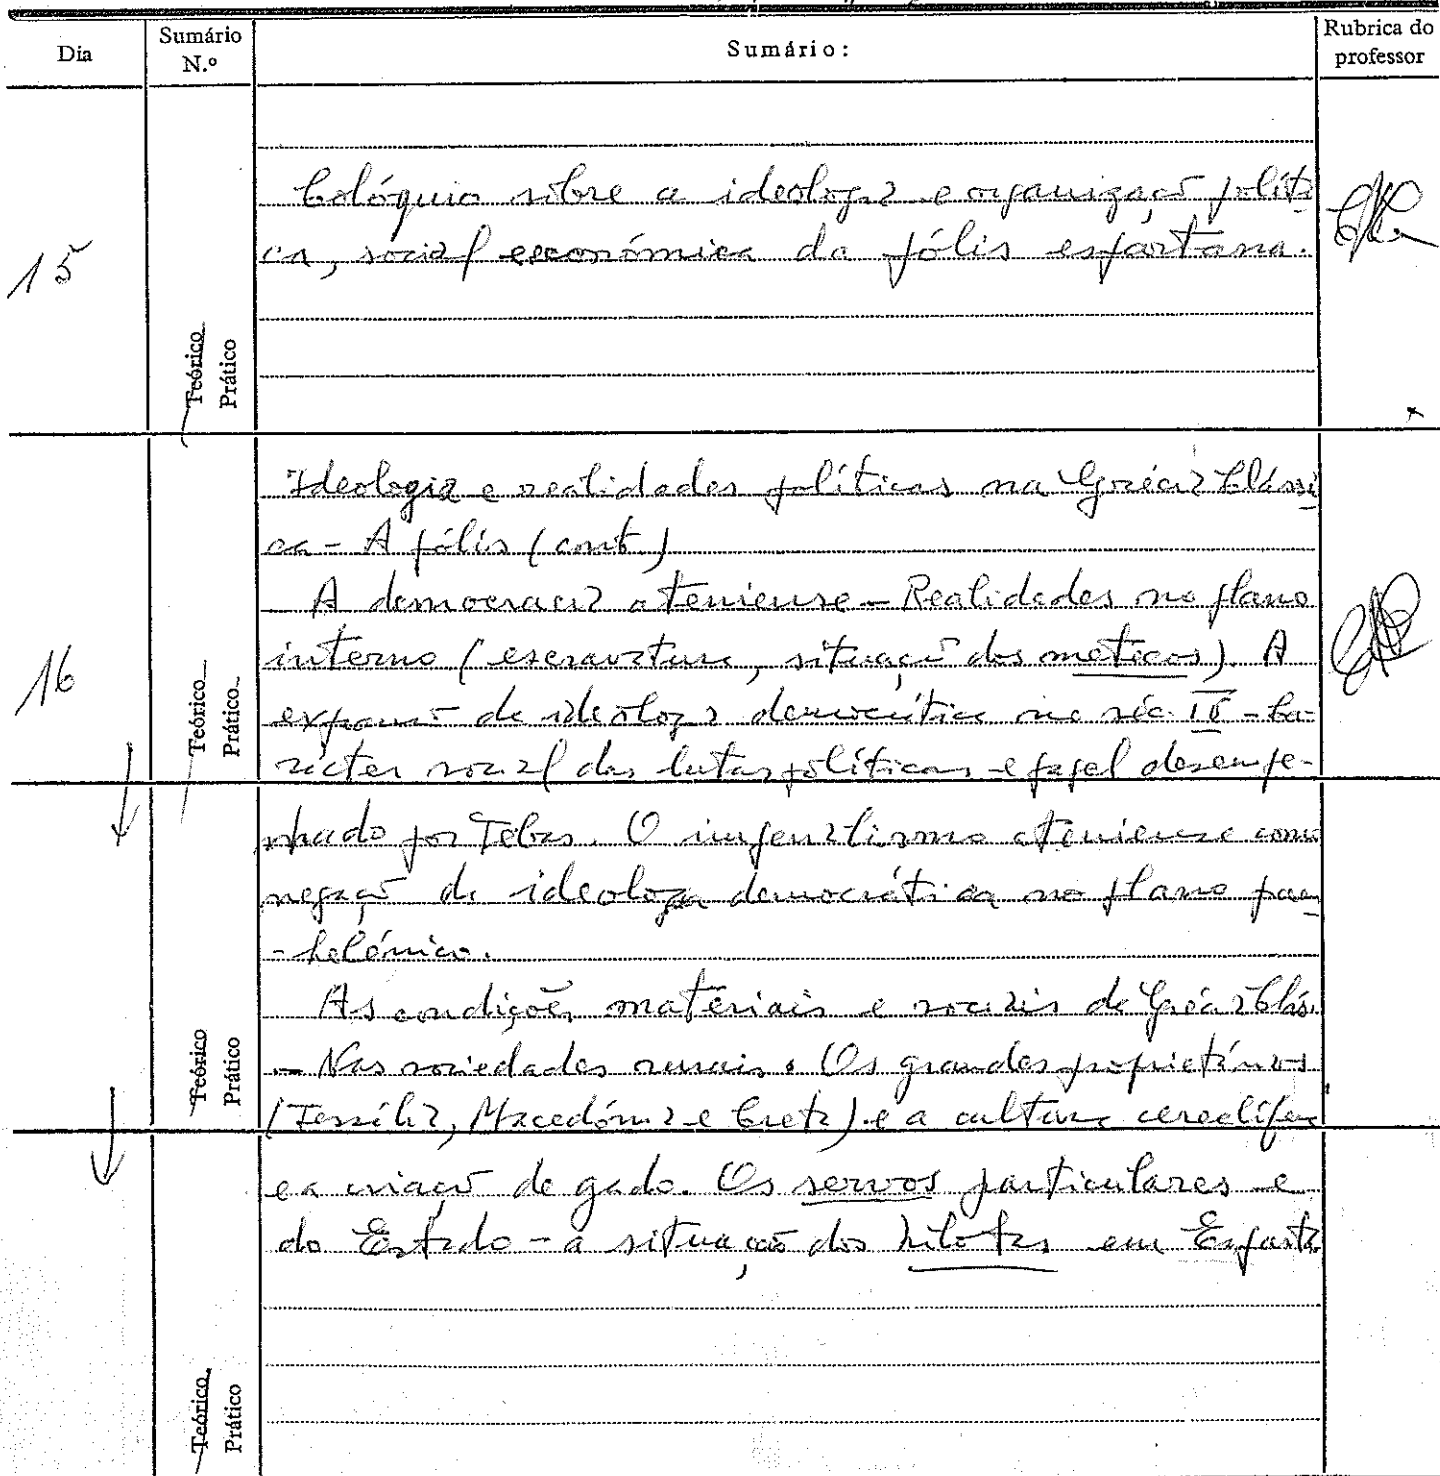 Dia
Sumário N.º
Sumário:
Rubrica do professor
15
Teórico
Prático
Colóquio sobre a ideologia e organização políti
ca, social económica da pólis espartana.
16
Teórico
Prático
Ideologia e realidades políticas na Grécia Clássi
ca - A pólis (cont.)
A democracia ateniense - Realidades no plano
interno (escravatura, situação dos metecos). A
expansão da ideologia democrática no séc. IV - Ca-
rácter social das lutas políticas e papel desempe-
nhado por Tebas. O imperialismo ateniense como
negação da ideologia democrática no plano pan
-helénico.
As condições materiais e sociais da Grécia Clás.
- Nas sociedades rurais. Os grandes proprietários
(Tessália, Macedónia e Creta) e a cultura cerealífera
e a criação de gado. Os servos particulares e
do Estado - a situação dos hilotas em Esparta
Teórico
Prático
Teórico
Prático